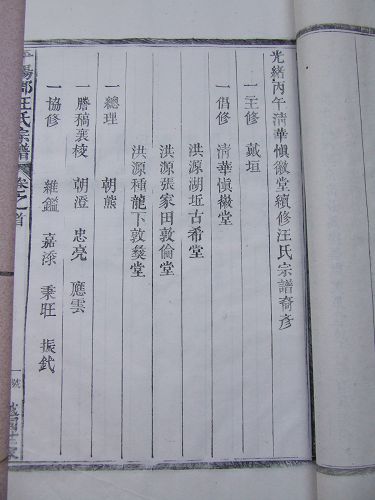 光緒丙午清華慎徽堂續修汪氏宗譜裔彥
一主修 戴垣
一倡修 清華慎徽堂
洪源湖坵古希堂
洪源張家田敦倫堂
洪源種龍下敦彜堂
一總理 朝熊
一謄稿襄校 朝澄 忠亮 應雲
一協修 維鑑 嘉添 秉旺 振
陽都汪氏宗譜 卷之首